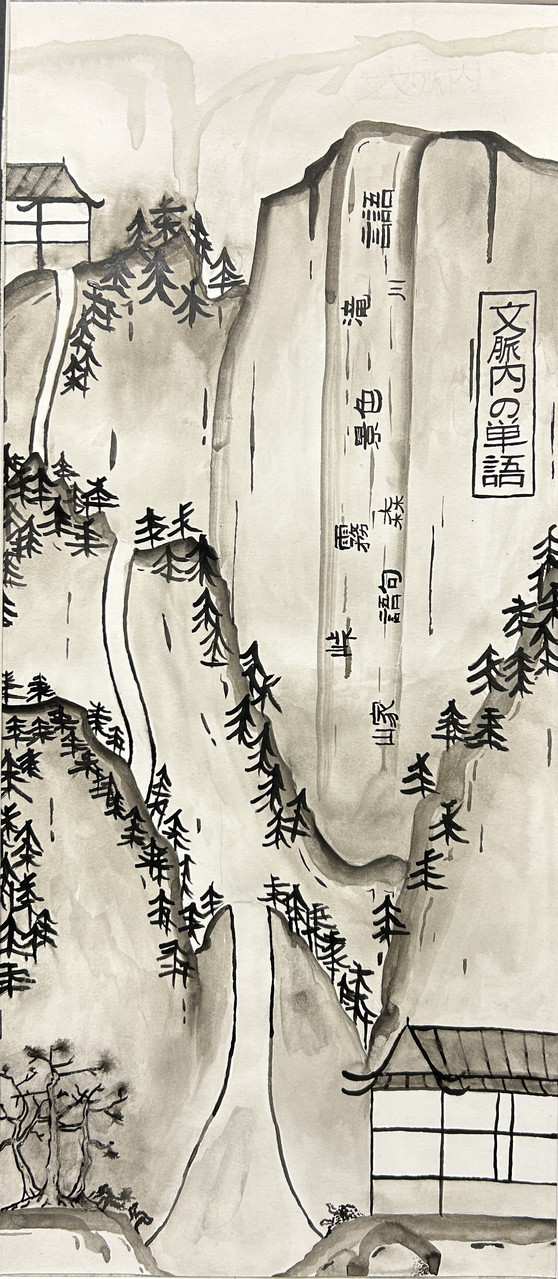 文脈内の単語
言語
川
滝
景色
森
霧
語句
峠
山家